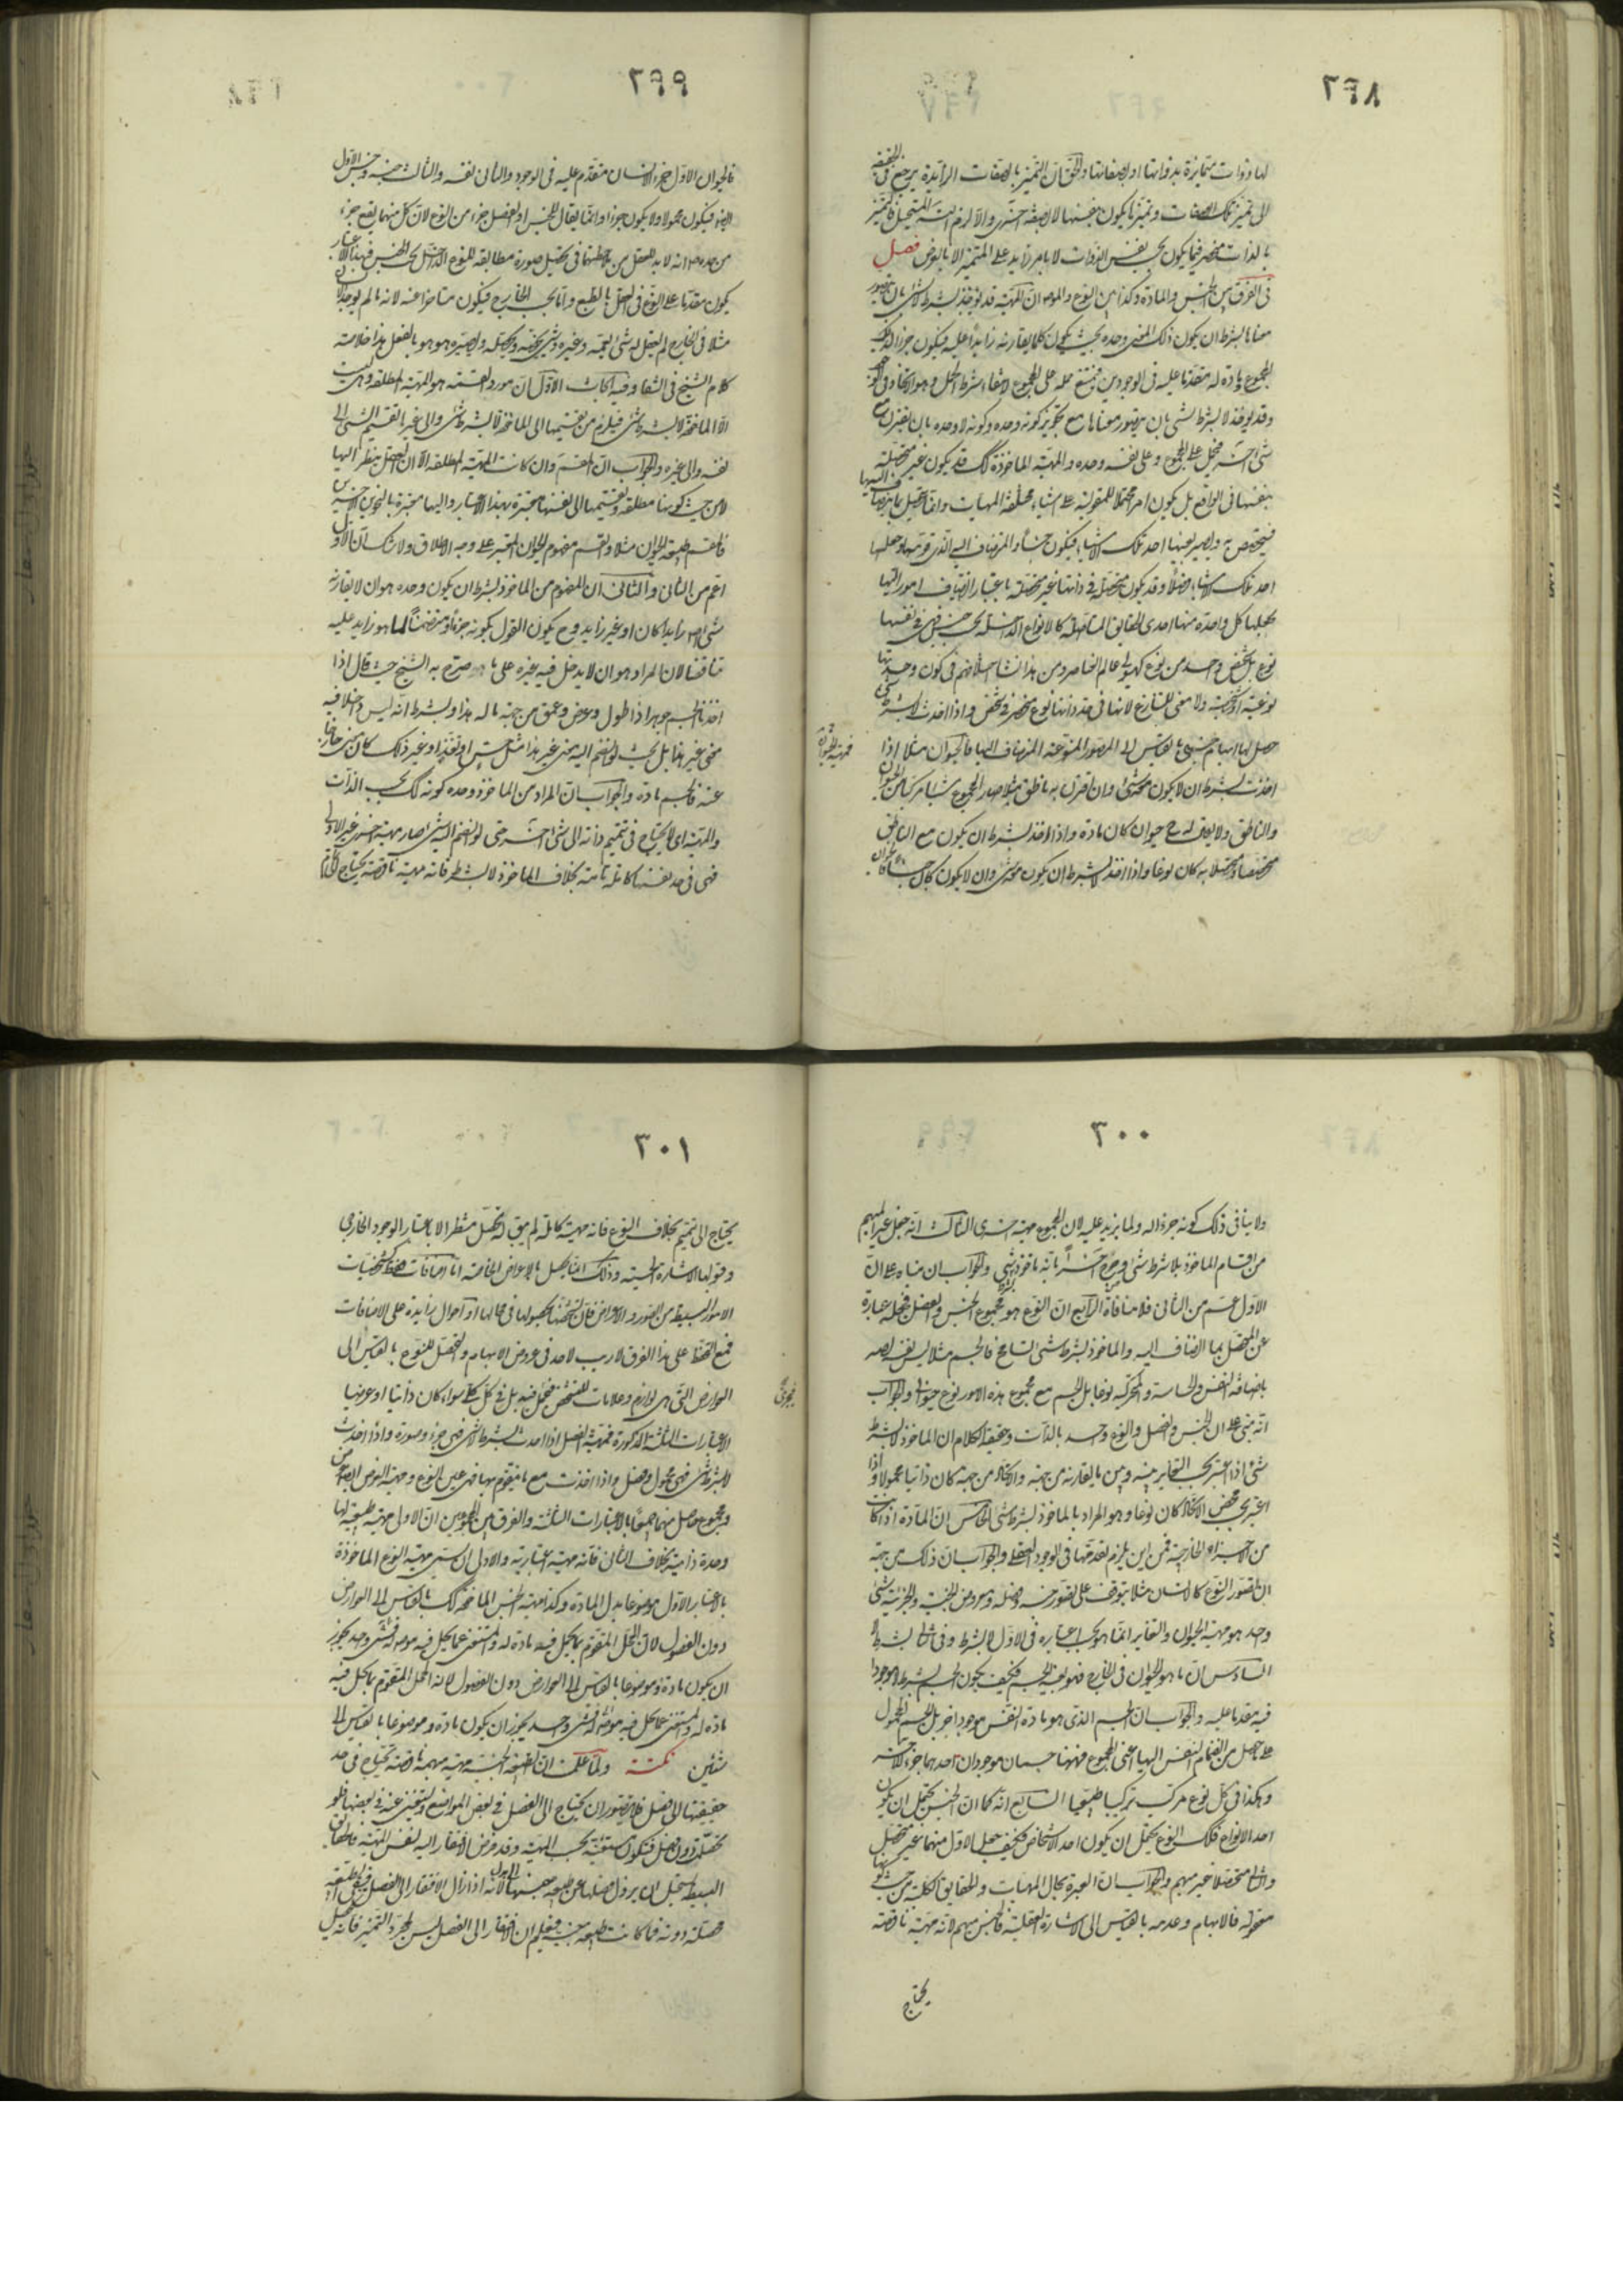 ٢٩٨
لها ذوات متمايزة بذواتها او بصفاتها والحق ان التميز بالصفات الزائدة يرجع في الحقيقة
الى تميز تلك الصفات وتميزها يكون بنفسها لا بصفة اخرى والا لزم المستحيل فالتميز
بالذات منحصر فيما يكون بحسب نفس الذوات لا بامر زايد على المتميز الا بالعرض فصل
في الفرق بين الجنس والمادة وكذا بين النوع والموضوع ان المهية قد تؤخذ بشرط لا شئ بان يتصور
معناها بشرط ان يكون ذلك المعنى وحده بحيث يكون كلما يقارنه زايدا عليه فيكون جزءا لذلك
المجموع مادة له متقدما عليه في الوجودين فيمتنع حمله على المجموع لانتفاء شرط الحمل وهو الاتحاد في الوجود
وقد تؤخذ لا بشرط شئ بان يتصور معناها مع تجويز كونه وحده وكونه لا وحده بان يقترن مع
شئ آخر فيحمل على المجموع وعلى نفسه وحده والمهية الماخوذة كك قد يكون غير متحصلة
بنفسها في الواقع بل يكون امرا محتملا للمقولية على اشياء مختلفة المهيات وانما يتحصل بما ينضاف اليها
فيتخصص به ويصير بعينها احد تلك الاشياء فيكون جنسا والمنضاف اليه الذي قومها وجعلها
احد تلك الاشياء فصلا وقد يكون متحصلة في ذاتها غير متحصلة باعتبار انضياف امور اليها
يجعلها كل واحدة منها احدى الحقايق المتاصلة كالانواع الداخلة تحت جنس فهي في نفسها
نوع بل شخص واحد من نوع كهيولى عالم العناصر ومن هذا نشا اختلافهم في كون وحدتها
نوعية او شخصية ولا معنى للتنازع لانها في حد ذاتها نوع منحصر في شخص واذا اخذت لا بشرط شئ
حصل لها ابهام جنسي بالقياس الى الصور المنوعة المنضاف اليها فالحيوان مثلا اذا
اخذت بشرط ان لا يكون معه شئ وان اقترن به ناطق مثلا صار المجموع شيئا مركبا من الحيوان
والناطق ولا يقال له ح حيوان كان مادة واذا اخذ بشرط ان يكون مع الناطق
متخصصا ومتحصلا به كان نوعا واذا اخذ لا بشرط ان يكون معه شئ وان لا يكون كان جنسا فالحيوان
٢٩٩
فالحيوان الاول جزء الانسان متقدم عليه في الوجود والثاني نفسه والثالث جنسه وجنس الاول
ايضا فيكون محمولا ولا يكون جزءا وانما يقال للجنس او الفصل جزء من النوع لان كل منهما يقع جزء
من حده ضرورة انه لا بد للعقل من ملاحظتهما في تحصيل صورة مطابقة للنوع الداخل تحت الجنس فبهذا الاعتبار
يكون متقدما على النوع في العقل بالطبع واما بحسب الخارج فيكون متاخرا عنه لانه ما لم يوجد الانسان
مثلا في الخارج لم يعقل له شئ يعمه وغيره وشئ يخصه ويحصله ويصيره هو هو بالفعل هذا خلاصة
كلام الشيخ في الشفا وفيه ابحاث الاول ان مورد القسمة هو المهية المطلقة وهي ليست
الا الماخوذة لا بشرط شئ فيلزم من تقسيمها الى الماخوذة لا بشرط شئ والى غيرها تقسيم الشئ الى
نفسه والى غيره والجواب ان المقسم وان كانت المهية المطلقة الا ان العقل ينظر اليها
لا من حيث كونها مطلقة وتقسيمها الى نفسها معتبرة بهذا الاعتبار واليها معتبرة بالنحوين الاخيرين
فالمقسم طبيعة الحيوان مثلا والقسم مفهوم الحيوان المعتبر على وجه الاطلاق ولا شك ان الاول
اعم من الثاني والثاني ان المفهوم من الماخوذ بشرط ان يكون وحده هو ان لا يقارنه
شئ اصلا زايدا كان او غير زايد وح يكون القول بكونه جزءا ومنضما لما هو زايد عليه
تناقضا لان المراد هو ان لا يدخل فيه غيره على ما صرح به الشيخ حيث قال اذا
اخذنا الجسم جوهرا ذا طول وعرض وعمق من جهة ما له هذا وبشرط انه ليس داخلا فيه
معنى غير هذا بل بحيث لو انضم اليه معنى غير هذا مثل حس او تغذ او غير ذلك كان معنى خارجا
عنه فالجسم مادة والجواب ان المراد من الماخوذ وحده كونه كك بحسب الذات
والمهية اى لا يحتاج في تتميم ذاته الى شئ آخر حتى لو انضم اليه شئ صار مهية اخرى غير الاولى
فهي في حد نفسها كاملة تامة بخلاف الماخوذ لا بشرط فانه مهية ناقصة يحتاج الى تمام
٣٠٠
ولا ينافي ذلك كونه جزءا له ولما يزيد عليه لان المجموع مهية اخرى الثالث انه جعل غير المبهم
من اقسام الماخوذ بلا شرط شئ وصرح آخرا بانه ماخوذ بشرط شئ والجواب ان مبناه على ان
الاول اعم من الثاني فلا منافاة الرابع ان النوع هو مجموع الجنس والفصل فجعله عبارة
عن المتحصل بما انضاف اليه والماخوذ بشرط شئ تسامح فالجسم مثلا ليس نفسه يصير
باضافة النفس والحساسة والمتحركة نوعا بل الجسم مع مجموع هذه الامور نوع حيواني والجواب
انه مبنى على ان الجنس والفصل والنوع واحد بالذات وحقيقة الكلام ان الماخوذ لا بشرط
شئ اذا اعتبر بحسب التغاير بينه وبين ما يقارنه من جهة والاتحاد من جهة كان ذاتيا محمولا واذا
اعتبر بحسب محض الاتحاد كان نوعا وهو المراد بالماخوذ بشرط شئ الخامس ان المادة اذا كانت
من الاجزاء الخارجية فمن اين يلزم تقدمها في الوجود العقلي والجواب ان ذلك من جهة
ان تصور النوع كالانسان مثلا يتوقف على تصور جنسه وفصله ومعروض الجنسية والجزئية شئ
واحد هو مهية الحيوان والتغاير انما هو بحسب اعتباره في الاول لا بشرط وفي الثاني بشرط لا
السادس ان ما هو الحيوان في الخارج فهو بعينه الجسم فكيف يكون الجسم بشرط لا موجودا
فيه متقدما عليه والجواب ان الجسم الذي هو مادة النفس موجود آخر بل الجسم المحمول
على ما حصل من انضمام النفس اليها اعني المجموع فههنا جسمان موجودان احدهما جزء للاخر
وهكذا في كل نوع مركب تركيبا طبيعيا السابع انه كما ان الجنس يحتمل ان يكون
احد الانواع فكك النوع يحتمل ان يكون احد الاشخاص فكيف جعل الاول منهما غير متحصل
والثاني متحصلا غير مبهم والجواب ان العبرة بحال المهيات والحقايق الكلية من حيث كونها
معقولة فالابهام وعدمه بالقياس الى الاشارة العقلية فالجنس مبهم لانه مهية ناقصة
يحتاج
٣٠١
يحتاج الى تتميم بخلاف النوع فانه مهية كاملة لم يبق له تحصل منتظر الا باعتبار الوجود الخارجي
وقبولها الاشارة الحسية وذلك انما يحصل بالاعراض الخاصة اما اضافات فقط كتشخصات
الامور البسيطة من الصور والاعراض فان تشخصها بحصولها في محالها او احوال زايدة على الاضافات
فمع التحفظ على هذا الفرق لا ريب لاحد في عروض الابهام والتحصل للنوع بالقياس الى
العوارض التي هي لوازم وعلامات للتشخص فيجرى فيه بل في كل كلي سواء كان ذاتيا او عرضيا
الاعتبارات الثلثة المذكورة فمهية الفصل اذا اخذت بشرط لا شئ فهي جزء وصورة واذا اخذت
لا بشرط شئ فهي محمول وفصل واذا اخذت مع ما يتقوم بها فهي عين النوع ومهية العرض ايضا عرض
ومجموع حاصل منهما جميعا بالاعتبارات الثلثة والفرق بين المجموعين ان الاولى مهية طبيعية لها
وحدة ذاتية بخلاف الثاني فانه مهية اعتبارية والاولى ان يسمى مهية النوع الماخوذة
بالاعتبار الاول موضوعا بدل المادة وكذا مهية الجنس الماخوذة كك بالقياس الى العوارض
دون الفصول لان المحل المتقوم بما يحل فيه مادة له والمستغني عما يحل فيه موضوع له فشئ واحد يجوز
ان يكون مادة وموضوعا بالقياس الى العوارض دون الفصول لانه المحل المتقوم بما يحل فيه
مادة له والمستغني عما يحل فيه موضوع له فشئ واحد يجوز ان يكون مادة وموضوعا بالقياس الى
شيئين نكتة ولما علمت ان الطبيعة الجنسية مهية مبهمة ناقصة تحتاج في حد
حقيقتها الى فصل فلا يتصور ان يحتاج الى الفصل في بعض المواضع ويستغني عنه في بعضها فلو
تحصلت دون فصل فتكون مستغنية بحسب المهية وقد فرض الافتقار اليه لنفس المهية
البسيط يستحيل ان يزول فصلها عن طبيعة جنسها لانه اذا زال الافتقار الى الفصل
فصلته دونه فما كانت طبيعة جنسية فيعلم ان الافتقار الى الفصل ليس لمجرد التميز فانه يحصل